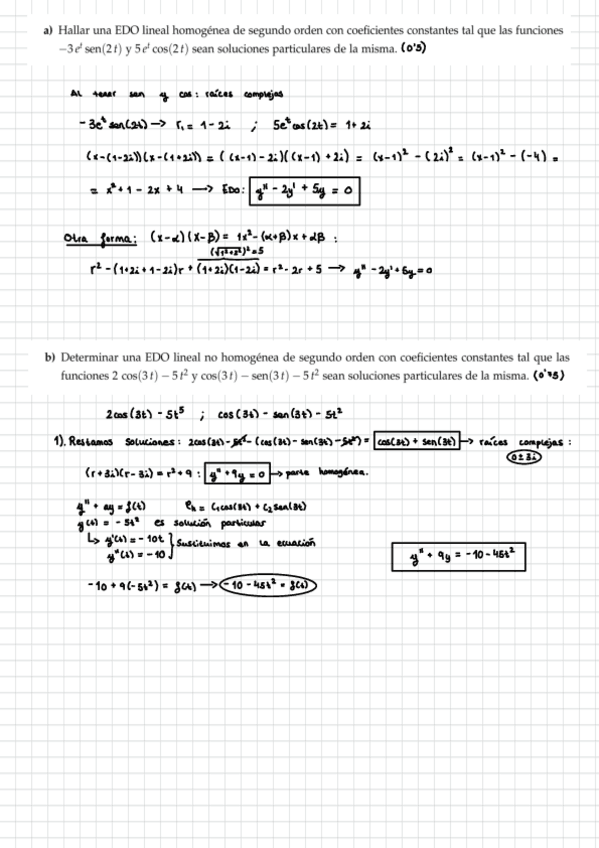 a) Hallar una EDO lineal homogénea de segundo orden con coeficientes constantes tal que las funciones
−3 eᵗ sen(2 t) y 5 eᵗ cos(2 t) sean soluciones particulares de la misma. (0'5)
Al tener sen y cos: raíces complejas
-3eᵗ sen(2t) → r₁ = 1-2i ; 5eᵗ cos(2t) = 1+2i
(x-(1-2i))(x-(1+2i)) = ((x-1)-2i)((x-1)+2i) = (x-1)² - (2i)² = (x-1)² - (-4) =
= x² + 1 - 2x + 4 → EDO: y'' - 2y' + 5y = 0
Otra forma: (x-α)(x-β) = 1x² - (α+β)x + αβ :
(√1²+2²)² = 5
r² - (1+2i + 1-2i)r + (1+2i)(1-2i) = r² - 2r + 5 → y'' - 2y' + 5y = 0
b) Determinar una EDO lineal no homogénea de segundo orden con coeficientes constantes tal que las
funciones 2 cos(3 t) − 5 t² y cos(3 t) − sen(3 t) − 5 t² sean soluciones particulares de la misma. (0'75)
2cos(3t) - 5t⁵ ; cos(3t) - sen(3t) - 5t²
1). Restamos soluciones: 2cos(3t) - 5t² - (cos(3t) - sen(3t) - 5t²) = cos(3t) + sen(3t) → raíces complejas:
0±3i
(r+3i)(r-3i) = r² + 9 : y'' + 9y = 0 → parte homogénea.
y'' + ay = f(t) eₕ = C₁cos(3t) + C₂sen(3t)
y(t) = -5t² es solución particular
↳ y'(t) = -10t } Sustituimos en la ecuación
y''(t) = -10
y'' + 9y = -10 - 45t²
-10 + 9(-5t²) = f(t) → -10 - 45t² = f(t)